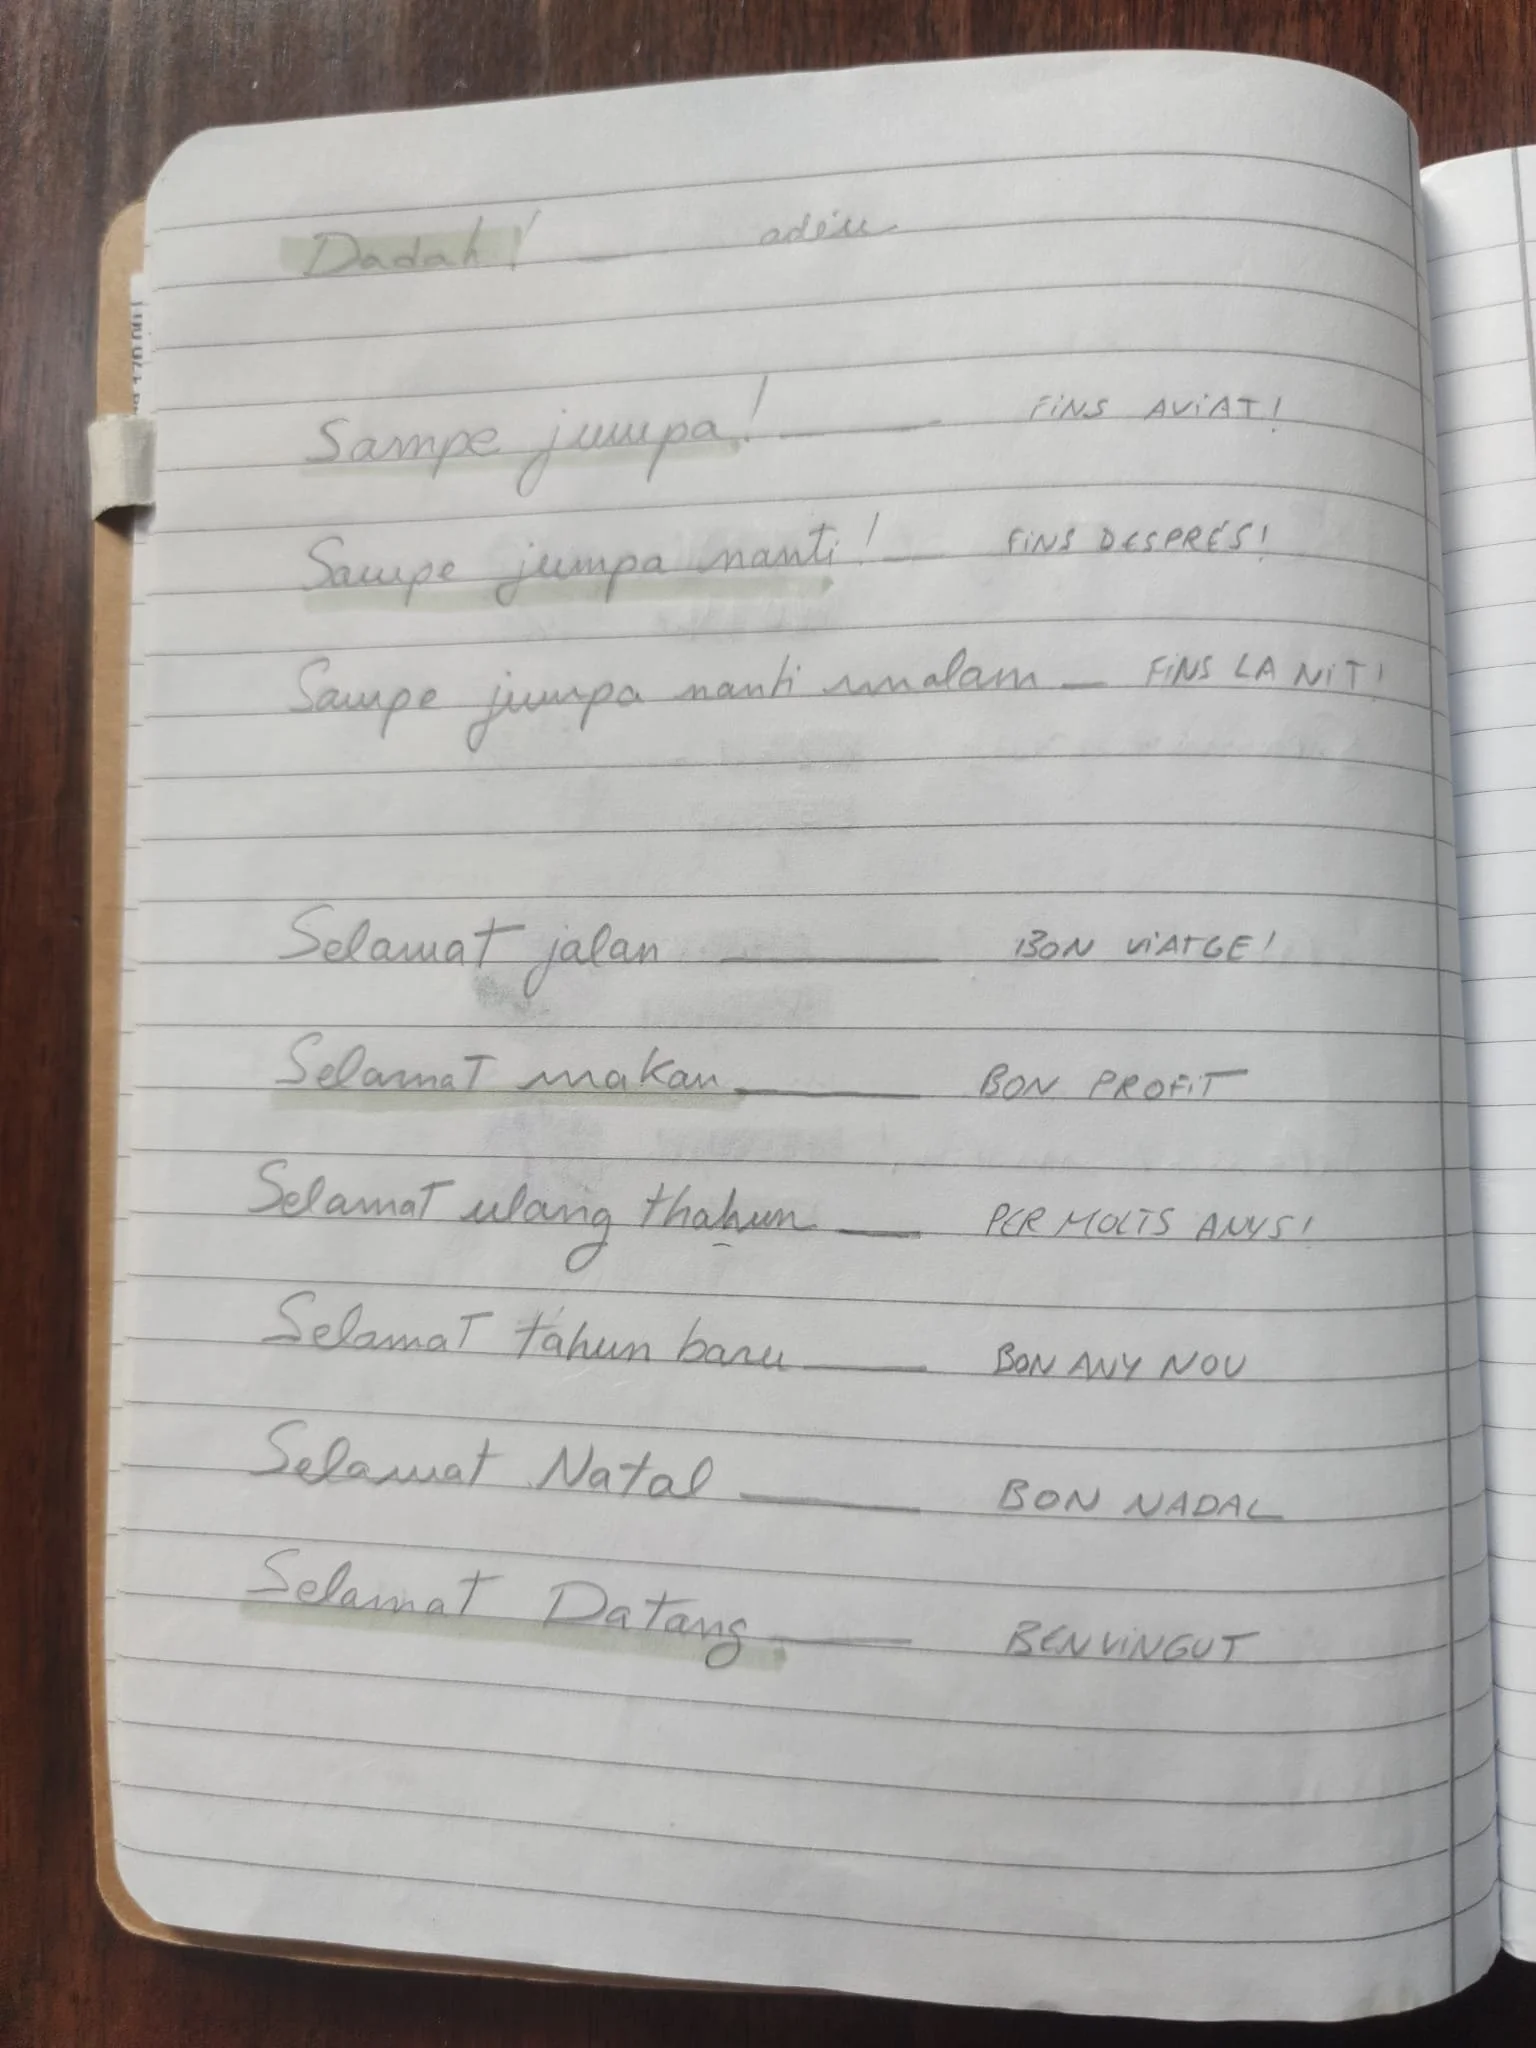 Dadah! — adéu
Sampe jumpa! — FINS AVIAT!
Sampe jumpa nanti! — FINS DESPRÉS!
Sampe jumpa nanti malam — FINS LA NIT!
Selamat jalan — BON VIATGE!
Selamat makan — BON PROFIT
Selamat ulang thahun — PER MOLTS ANYS!
Selamat tahun baru — BON ANY NOU
Selamat Natal — BON NADAL
Selamat Datang — BENVINGUT